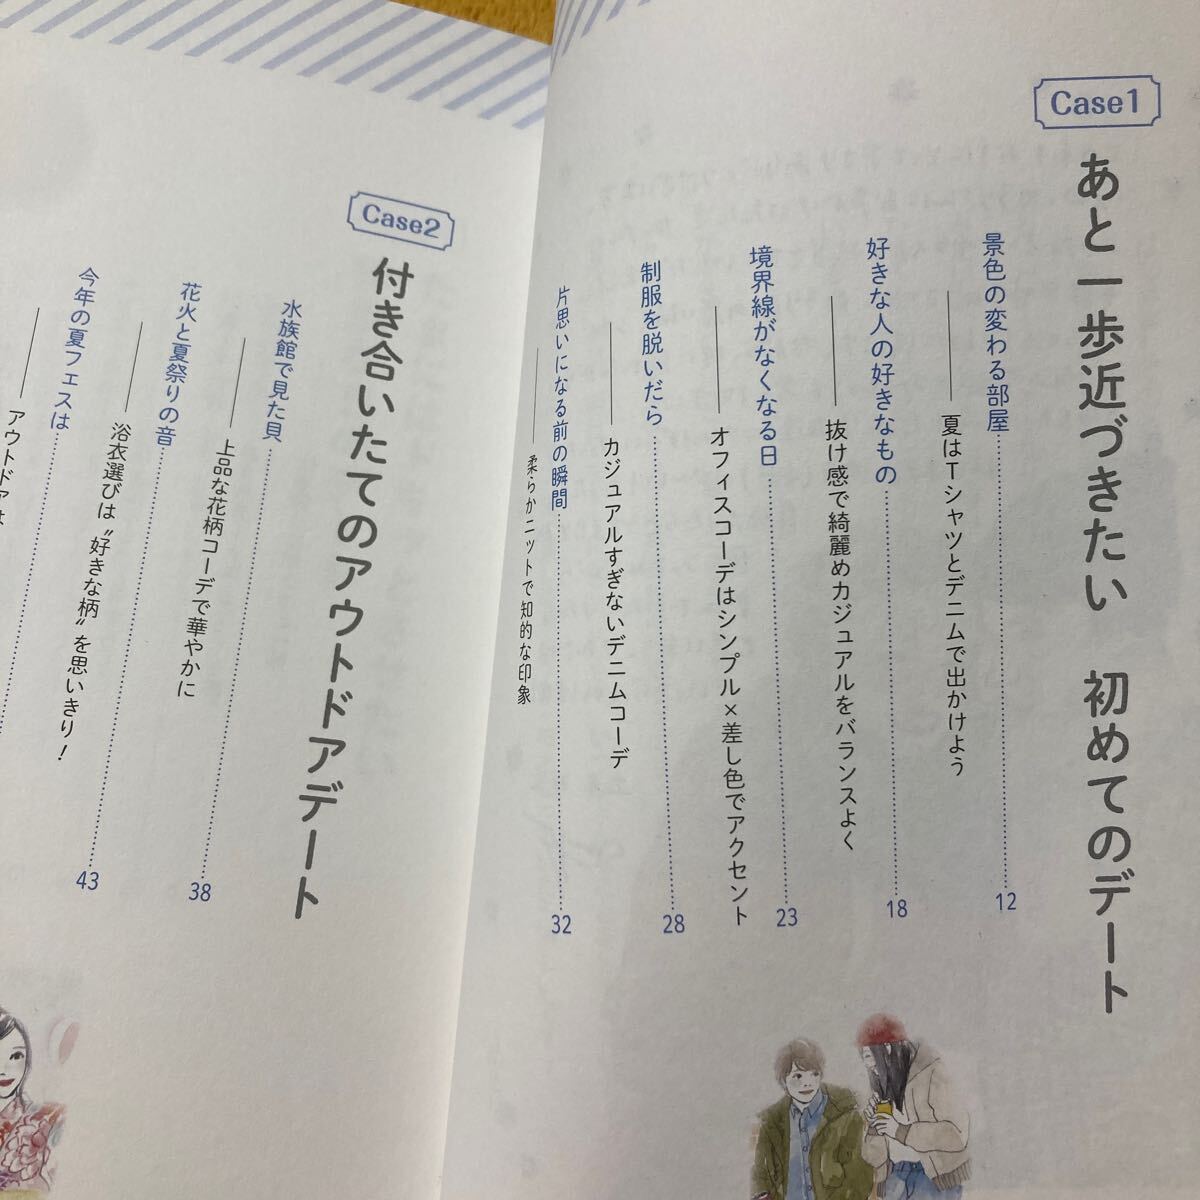 Case1
あと一歩近づきたい 初めてのデート
景色の変わる部屋 12
夏はTシャツとデニムで出かけよう
好きな人の好きなもの 18
抜け感で綺麗めカジュアルをバランスよく
境界線がなくなる日 23
オフィスコーデはシンプル×差し色でアクセント
制服を脱いだら 28
カジュアルすぎないデニムコーデ
片思いになる前の瞬間 32
柔らかニットで知的な印象
Case2
付き合いたてのアウトドアデート
水族館で見た貝 38
上品な花柄コーデで華やかに
花火と夏祭りの音 43
浴衣選びは〝好きな柄〟を思いきり!
今年の夏フェスは
アウトドアは